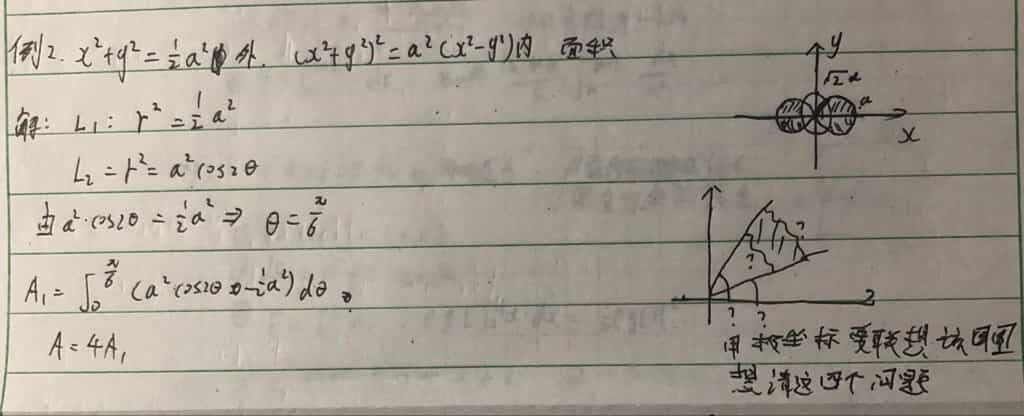 例2. x²+y²=½a² 外. (x²+y²)²=a²(x²-y²)内 面积
解: L₁: r²=½a²
L₂=r²=a²cos2θ
由a²·cos2θ=½a² ⇒ θ=π/6
A₁=∫₀^{π/6}(a²cos2θ-½a²)dθ
A=4A₁
y
√2 a
a
x
?
?
? ?
2
用极坐标要联想该图
想清这四个问题